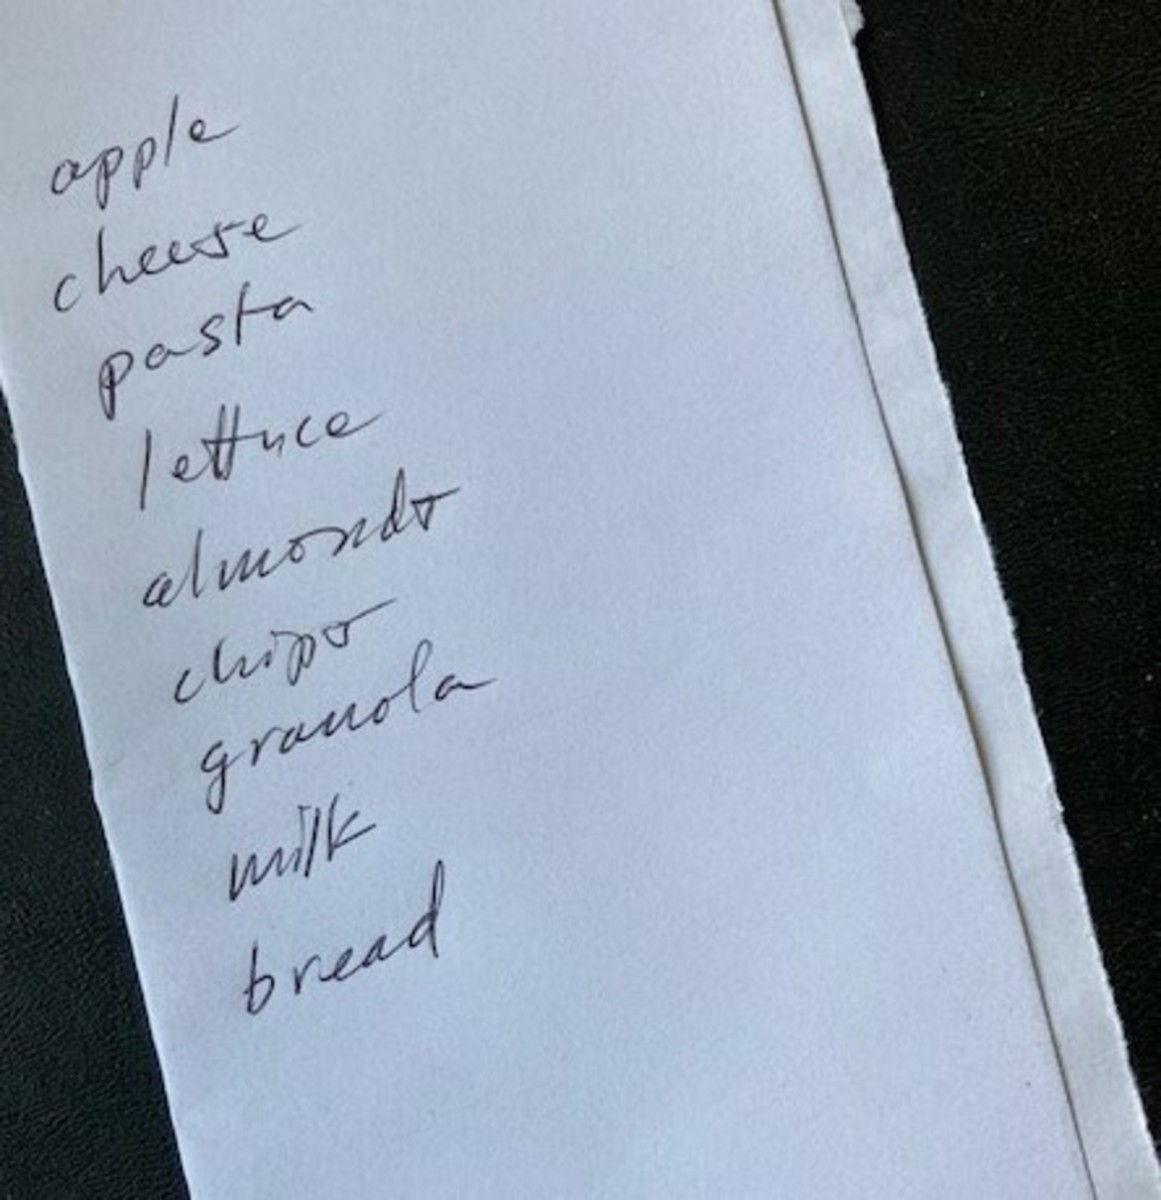 apple
cheese
pasta
lettuce
almonds
chips
granola
milk
bread